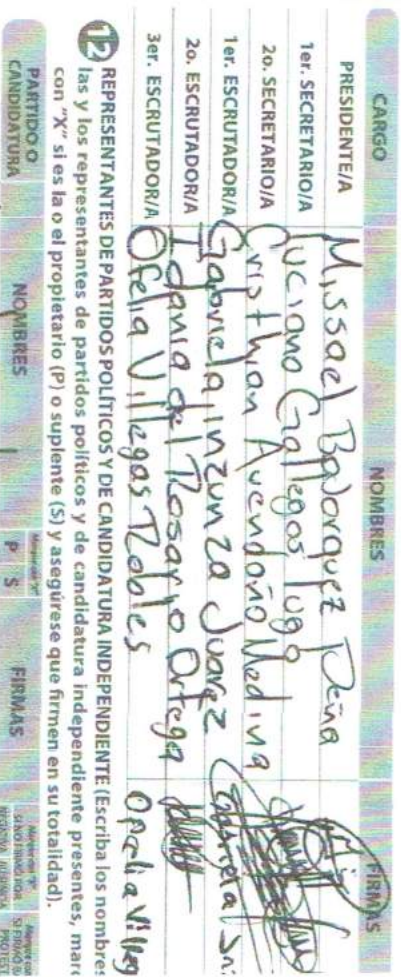 CARGO NOMBRES FIRMAS
PRESIDENTE/A Missael Bojorquez Peña
1er. SECRETARIO/A Luciano Gallegos Lugo
2o. SECRETARIO/A Cristhian Avendaño Medina
1er. ESCRUTADOR/A Gabriela Inzunza Juarez Gabriela In.
2o. ESCRUTADOR/A Idania del Rosario Ortega
3er. ESCRUTADOR/A Ofelia Villegas Robles Ofelia Villeg
12 REPRESENTANTES DE PARTIDOS POLÍTICOS Y DE CANDIDATURA INDEPENDIENTE (Escriba los nombres
las y los representantes de partidos políticos y de candidatura independiente presentes, marq
con "X" si es la o el propietario (P) o suplente (S) y asegúrese que firmen en su totalidad).
PARTIDO O CANDIDATURA NOMBRES P S FIRMAS